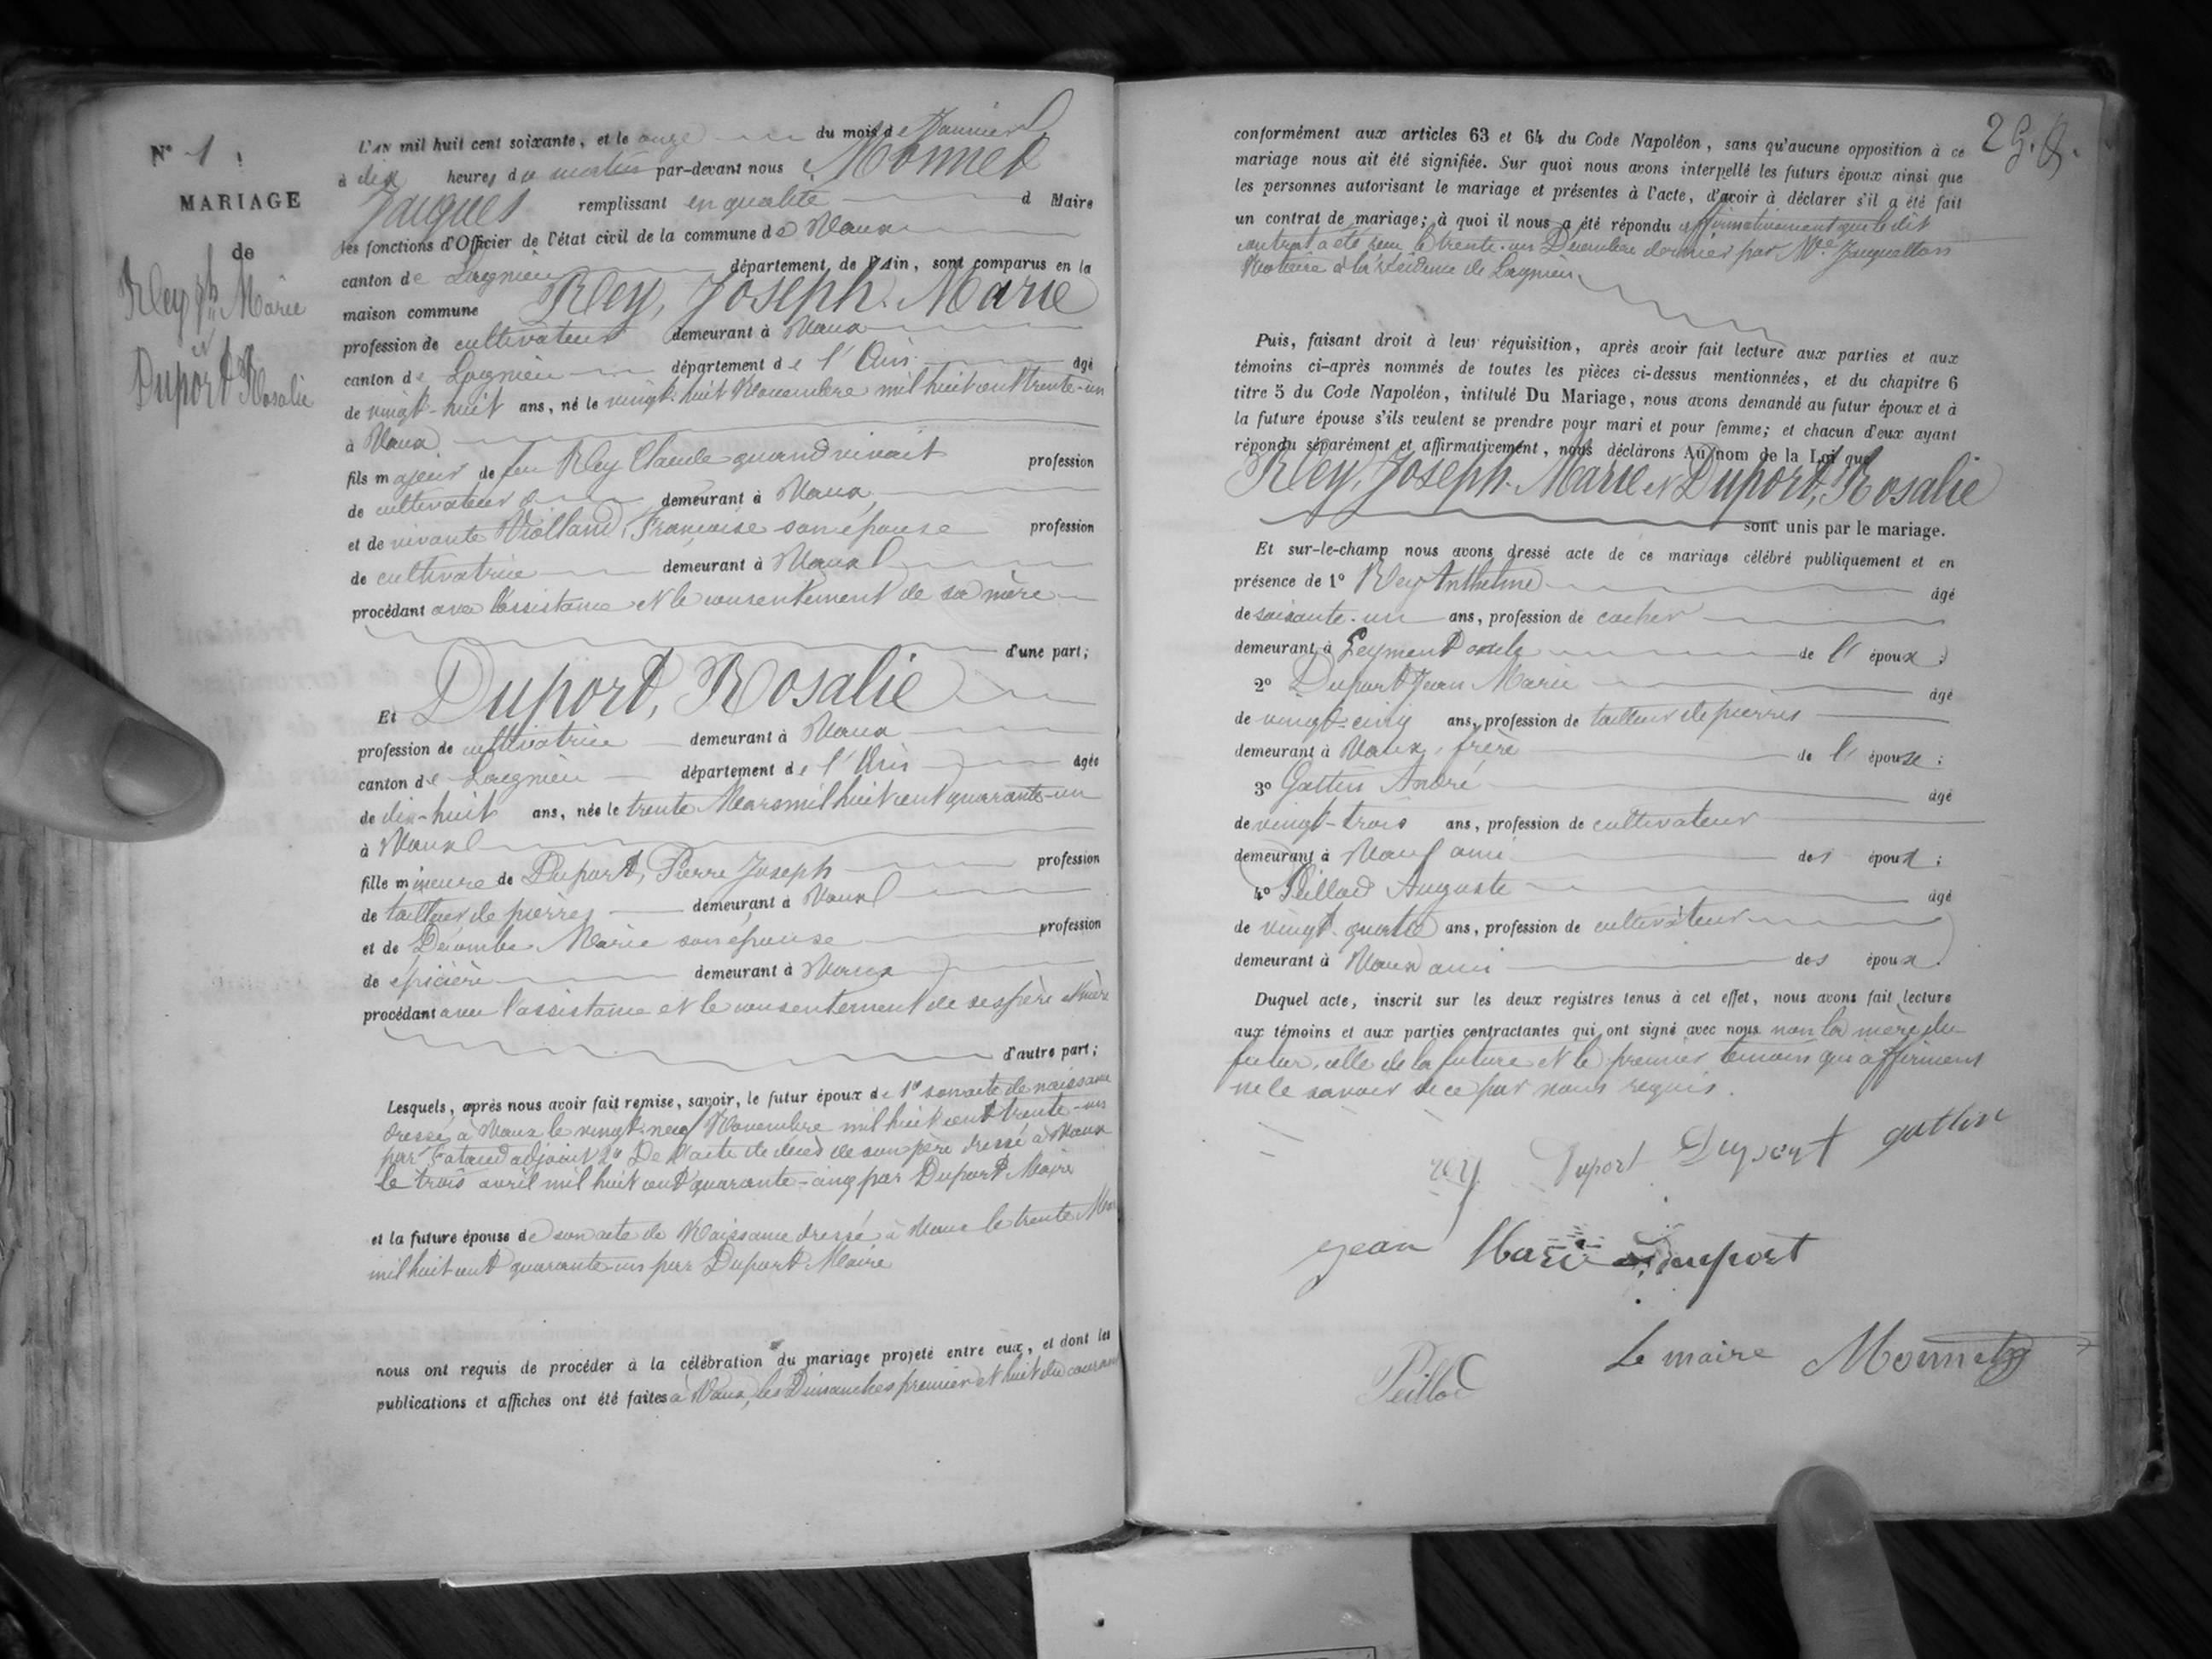 N° 1.
MARIAGE
de
Rey Jh Marie
et
Duport Rosalie
L'AN mil huit cent soixante, et le onze du mois de Janvier
à dix heures du matin par-devant nous Monnet
Jacques remplissant en qualité d Maire
les fonctions d'Officier de l'état civil de la commune de Vaux
canton de Lagnieu département de l'Ain, sont comparus en la
maison commune Rey, Joseph-Marie
profession de cultivateur demeurant à Vaux
canton de Lagnieu département de l'Ain âgé
de vingt-huit ans, né le vingt-huit Novembre mil huit cent trente-un
à Vaux
fils majeur de feu Rey Claude quand vivait profession
de cultivateur demeurant à Vaux
et de vivante Violland, Françoise son épouse profession
de cultivatrice demeurant à Vaux
procédant avec l'assistance et le consentement de sa mère
d'une part;
Et Duport, Rosalie
profession de cultivatrice demeurant à Vaux
canton de Lagnieu département de l'Ain âgée
de dix-huit ans, née le trente Mars mil huit cent quarante-un
à Vaux
fille mineure de Duport, Pierre Joseph profession
de tailleur de pierres demeurant à Vaux
et de Décombe Marie son épouse profession
de épicière demeurant à Vaux
procédant avec l'assistance et le consentement de ses père et mère
d'autre part;
Lesquels, après nous avoir fait remise, savoir, le futur époux de 1° son acte de naissance
dressé à Vaux le vingt-neuf Novembre mil huit cent trente-un
par adjoint 2° De l'acte de décès de son père dressé à Vaux
le trois avril mil huit cent quarante-cinq par Duport Maire
et la future épouse de son acte de Naissance dressé à Vaux le trente Mars
mil huit cent quarante-un par Duport Maire
nous ont requis de procéder à la célébration du mariage projeté entre eux, et dont les
publications et affiches ont été faites à Vaux, les Dimanches premier et huit du courant
conformément aux articles 63 et 64 du Code Napoléon, sans qu'aucune opposition à ce
mariage nous ait été signifiée. Sur quoi nous avons interpellé les futurs époux ainsi que
les personnes autorisant le mariage et présentes à l'acte, d'avoir à déclarer s'il a été fait
un contrat de mariage; à quoi il nous a été répondu affirmativement que le dit
contrat a été reçu le trente-un Décembre dernier par Me Jacquetton
Notaire à la résidence de Lagnieu
Puis, faisant droit à leur réquisition, après avoir fait lecture aux parties et aux
témoins ci-après nommés de toutes les pièces ci-dessus mentionnées, et du chapitre 6
titre 5 du Code Napoléon, intitulé Du Mariage, nous avons demandé au futur époux et à
la future épouse s'ils veulent se prendre pour mari et pour femme; et chacun d'eux ayant
répondu séparément et affirmativement, nous déclarons Au nom de la Loi que
Rey, Joseph-Marie et Duport, Rosalie
sont unis par le mariage.
Et sur-le-champ nous avons dressé acte de ce mariage célébré publiquement et en
présence de 1° Rey Anthelme âgé
de soixante-un ans, profession de cocher
demeurant à Leyment oncle de l'époux;
2° Duport Jean Marie âgé
de vingt-cinq ans, profession de tailleur de pierres
demeurant à Vaux, frère de l'épouse;
3° Gattin André âgé
de vingt-trois ans, profession de cultivateur
demeurant à Vaux ami des époux;
4° Peillod Auguste âgé
de vingt-quatre ans, profession de cultivateur
demeurant à Vaux ami des époux.
Duquel acte, inscrit sur les deux registres tenus à cet effet, nous avons fait lecture
aux témoins et aux parties contractantes qui ont signé avec nous non la mère du
futur, celle de la future et le premier témoin qui affirment
ne le savoir de ce par nous requis.
rey Duport Duport gattin
jean Marie duport
Le maire Monnet
Peillod